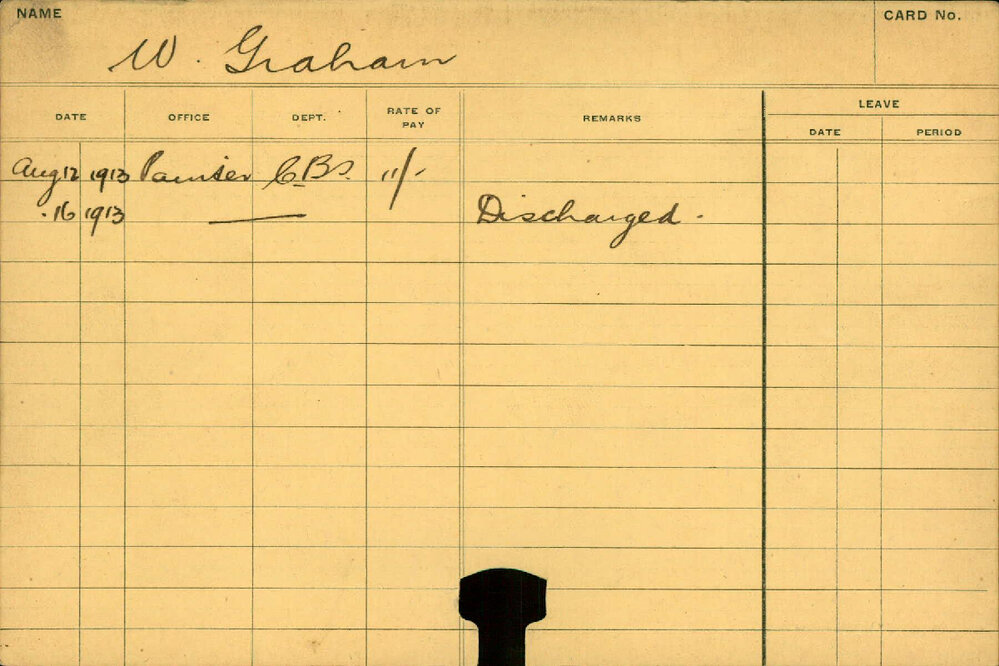 NAME
CARD No.
W. Graham
DATE OFFICE DEPT. RATE OF PAY REMARKS LEAVE
DATE PERIOD
Aug 12 1913 Painter C.B.S. 11/-
. 16 1913 — Discharged.